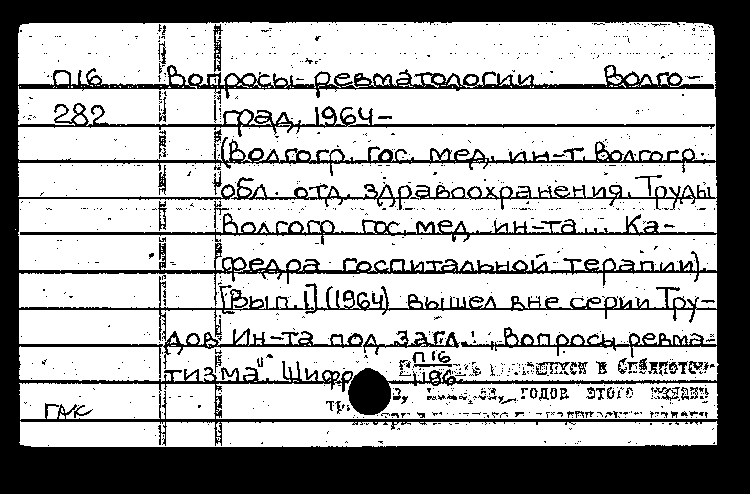 П16 Вопросы ревматологии Волго-
282 град, 1964-
(Волгогр. гос. мед. ин-т. Волгогр.
обл. отд. здравоохранения. Труды
Волгогр. гос. мед. ин-та... Ка-
федра госпитальной терапии).
[Вып. 1] (1964) вышел вне серии Тру-
дов Ин-та под загл.: „Вопросы ревма-
тизма". Шифр П16
1196
в библиотеке
годов этого
ГАК